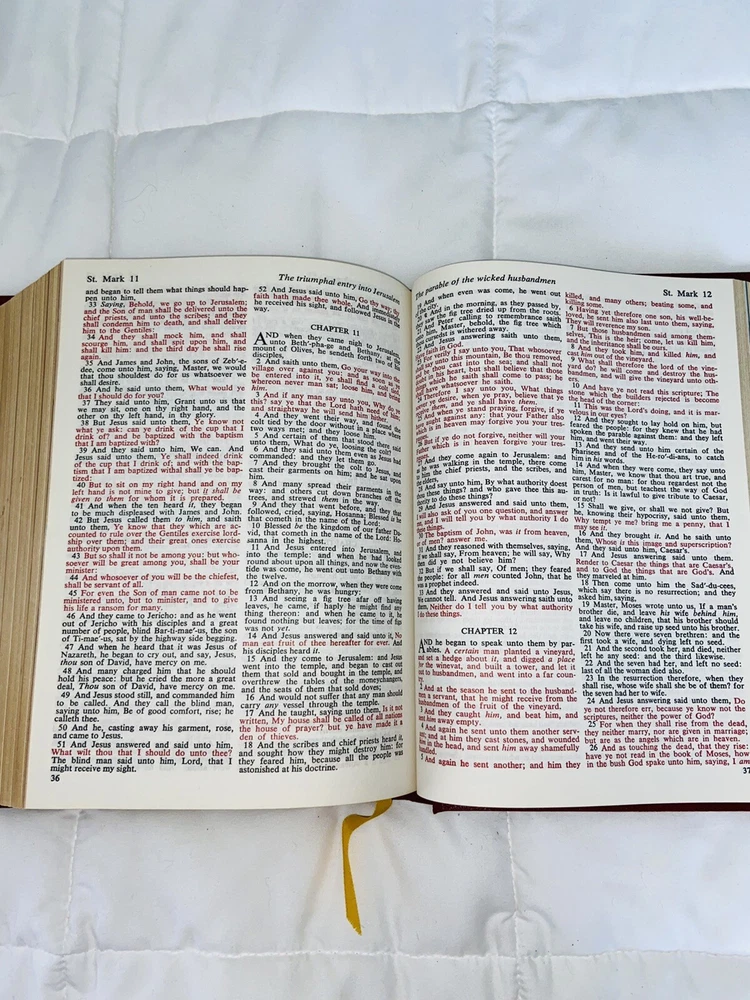 St. Mark 11
The triumphal entry into Jerusalem
and began to tell them what things should hap-
pen unto him,
33 Saying, Behold, we go up to Jerusalem;
and the Son of man shall be delivered unto the
chief priests, and unto the scribes; and they
shall condemn him to death, and shall deliver
him to the Gentiles:
34 And they shall mock him, and shall
scourge him, and shall spit upon him, and
shall kill him: and the third day he shall rise
again.
35 And James and John, the sons of Zeb'-e-
dee, come unto him, saying, Master, we would
that thou shouldest do for us whatsoever we
shall desire.
36 And he said unto them, What would ye
that I should do for you?
37 They said unto him, Grant unto us that
we may sit, one on thy right hand, and the
other on thy left hand, in thy glory.
38 But Jesus said unto them, Ye know not
what ye ask: can ye drink of the cup that I
drink of? and be baptized with the baptism
that I am baptized with?
39 And they said unto him, We can. And
Jesus said unto them, Ye shall indeed drink
of the cup that I drink of; and with the bap-
tism that I am baptized withal shall ye be bap-
tized:
40 But to sit on my right hand and on my
left hand is not mine to give; but it shall be
given to them for whom it is prepared.
41 And when the ten heard it, they began
to be much displeased with James and John.
42 But Jesus called them to him, and saith
unto them, Ye know that they which are ac-
counted to rule over the Gentiles exercise lord-
ship over them; and their great ones exercise
authority upon them.
43 But so shall it not be among you: but who-
soever will be great among you, shall be your
minister:
44 And whosoever of you will be the chiefest,
shall be servant of all.
45 For even the Son of man came not to be
ministered unto, but to minister, and to give
his life a ransom for many.
46 And they came to Jericho: and as he went
out of Jericho with his disciples and a great
number of people, blind Bar-ti-mae'-us, the son
of Ti-mae'-us, sat by the highway side begging.
47 And when he heard that it was Jesus of
Nazareth, he began to cry out, and say, Jesus,
thou son of David, have mercy on me.
48 And many charged him that he should
hold his peace: but he cried the more a great
deal, Thou son of David, have mercy on me.
49 And Jesus stood still, and commanded him
to be called. And they call the blind man,
saying unto him, Be of good comfort, rise; he
calleth thee.
50 And he, casting away his garment, rose,
and came to Jesus.
51 And Jesus answered and said unto him,
What wilt thou that I should do unto thee?
The blind man said unto him, Lord, that I
might receive my sight.
52 And Jesus said unto him, Go thy way; thy
faith hath made thee whole. And immediately
he received his sight, and followed Jesus in the
way.
CHAPTER 11
AND when they came nigh to Jerusalem,
unto Beth'-pha-ge and Bethany, at the
mount of Olives, he sendeth forth two of his
disciples,
2 And saith unto them, Go your way into the
village over against you: and as soon as ye
be entered into it, ye shall find a colt tied,
whereon never man sat; loose him, and bring
him.
3 And if any man say unto you, Why do ye
this? say ye that the Lord hath need of him;
and straightway he will send him hither.
4 And they went their way, and found the
colt tied by the door without in a place where
two ways met; and they loose him.
5 And certain of them that stood there said
unto them, What do ye, loosing the colt?
6 And they said unto them even as Jesus had
commanded: and they let them go.
7 And they brought the colt to Jesus, and
cast their garments on him; and he sat upon
him.
8 And many spread their garments in the
way: and others cut down branches off the
trees, and strewed them in the way.
9 And they that went before, and they that
followed, cried, saying, Hosanna; Blessed is he
that cometh in the name of the Lord:
10 Blessed be the kingdom of our father Da-
vid, that cometh in the name of the Lord: Ho-
sanna in the highest.
11 And Jesus entered into Jerusalem, and
into the temple: and when he had looked
round about upon all things, and now the even-
tide was come, he went out unto Bethany with
the twelve.
12 And on the morrow, when they were come
from Bethany, he was hungry:
13 And seeing a fig tree afar off having
leaves, he came, if haply he might find any
thing thereon: and when he came to it, he
found nothing but leaves; for the time of figs
was not yet.
14 And Jesus answered and said unto it, No
man eat fruit of thee hereafter for ever. And
his disciples heard it.
15 And they come to Jerusalem: and Jesus
went into the temple, and began to cast out
them that sold and bought in the temple, and
overthrew the tables of the moneychangers,
and the seats of them that sold doves;
16 And would not suffer that any man should
carry any vessel through the temple.
17 And he taught, saying unto them, Is it not
written, My house shall be called of all nations
the house of prayer? but ye have made it a
den of thieves.
18 And the scribes and chief priests heard it,
and sought how they might destroy him: for
they feared him, because all the people was
astonished at his doctrine.
36
The parable of the wicked husbandmen
St. Mark 12
19 And when even was come, he went out
of the city.
And in the morning, as they passed by,
the fig tree dried up from the roots.
And Peter calling to remembrance saith
Master, behold, the fig tree which
cursedst is withered away.
And Jesus answering saith unto them,
faith in God.
For verily I say unto you, That whosoever
say unto this mountain, Be thou removed,
be thou cast into the sea; and shall not
in his heart, but shall believe that those
which he saith shall come to pass; he
have whatsoever he saith.
Therefore I say unto you, What things
ye desire, when ye pray, believe that ye
them, and ye shall have them.
And when ye stand praying, forgive, if ye
ought against any: that your Father also
is in heaven may forgive you your tres-
But if ye do not forgive, neither will your
which is in heaven forgive your tres-
And they come again to Jerusalem: and
he was walking in the temple, there come
him the chief priests, and the scribes, and
the elders,
And say unto him, By what authority doest
thou these things? and who gave thee this au-
thority to do these things?
29 And Jesus answered and said unto them,
I will also ask of you one question, and answer
me, and I will tell you by what authority I do
these things.
30 The baptism of John, was it from heaven,
or of men? answer me.
31 And they reasoned with themselves, saying,
If we shall say, From heaven; he will say, Why
then did ye not believe him?
32 But if we shall say, Of men; they feared
the people: for all men counted John, that he
was a prophet indeed.
33 And they answered and said unto Jesus,
We cannot tell. And Jesus answering saith unto
them, Neither do I tell you by what authority
I do these things.
CHAPTER 12
AND he began to speak unto them by par-
ables. A certain man planted a vineyard,
and set a hedge about it, and digged a place
for the winefat, and built a tower, and let it
out to husbandmen, and went into a far coun-
try.
2 And at the season he sent to the husband-
men a servant, that he might receive from the
husbandmen of the fruit of the vineyard.
3 And they caught him, and beat him, and
sent him away empty.
4 And again he sent unto them another serv-
ant; and at him they cast stones, and wounded
him in the head, and sent him away shamefully
handled.
5 And again he sent another; and him they
killed, and many others; beating some, and
killing some.
6 Having yet therefore one son, his well-be-
loved, he sent him also last unto them, saying,
They will reverence my son.
7 But those husbandmen said among them-
selves, This is the heir; come, let us kill him,
and the inheritance shall be ours.
8 And they took him, and killed him, and
cast him out of the vineyard.
9 What shall therefore the lord of the vine-
yard do? he will come and destroy the hus-
bandmen, and will give the vineyard unto oth-
ers.
10 And have ye not read this scripture; The
stone which the builders rejected is become
the head of the corner:
11 This was the Lord's doing, and it is mar-
velous in our eyes?
12 And they sought to lay hold on him, but
feared the people: for they knew that he had
spoken the parable against them: and they left
him, and went their way.
13 And they send unto him certain of the
Pharisees and of the He-ro'-di-ans, to catch
him in his words.
14 And when they were come, they say unto
him, Master, we know that thou art true, and
carest for no man: for thou regardest not the
person of men, but teachest the way of God
in truth: Is it lawful to give tribute to Caesar,
or not?
15 Shall we give, or shall we not give? But
he, knowing their hypocrisy, said unto them,
Why tempt ye me? bring me a penny, that I
may see it.
16 And they brought it. And he saith unto
them, Whose is this image and superscription?
And they said unto him, Caesar's.
17 And Jesus answering said unto them,
Render to Caesar the things that are Caesar's,
and to God the things that are God's. And
they marveled at him.
18 Then come unto him the Sad'-du-cees,
which say there is no resurrection; and they
asked him, saying,
19 Master, Moses wrote unto us, If a man's
brother die, and leave his wife behind him,
and leave no children, that his brother should
take his wife, and raise up seed unto his brother.
20 Now there were seven brethren: and the
first took a wife, and dying left no seed.
21 And the second took her, and died, neither
left he any seed: and the third likewise.
22 And the seven had her, and left no seed:
last of all the woman died also.
23 In the resurrection therefore, when they
shall rise, whose wife shall she be of them? for
the seven had her to wife.
24 And Jesus answering said unto them, Do
ye not therefore err, because ye know not the
scriptures, neither the power of God?
25 For when they shall rise from the dead,
they neither marry, nor are given in marriage;
but are as the angels which are in heaven.
26 And as touching the dead, that they rise:
have ye not read in the book of Moses, how
in the bush God spake unto him, saying, I am
37